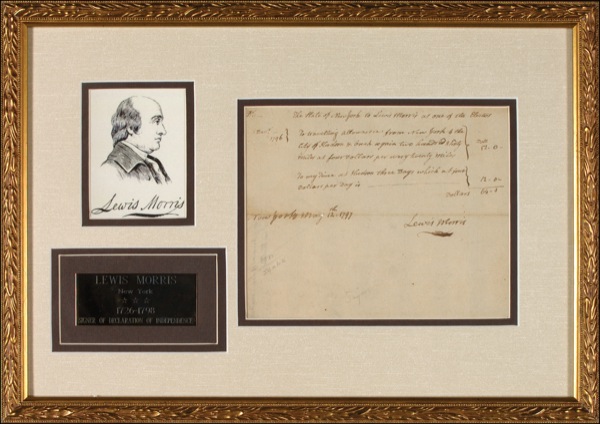 Lewis Morris
LEWIS MORRIS
New York
1726-1798
SIGNER OF DECLARATION OF INDEPENDENCE
The State of New York to Lewis Morris as one of the
1796
To travelling from New York to the
City of Hudson & back again two hundred &
miles at four dollars per every twenty miles
To my at Hudson three Days which at four
dollars per day is
Dollars
New York May 14th 1797
Lewis Morris